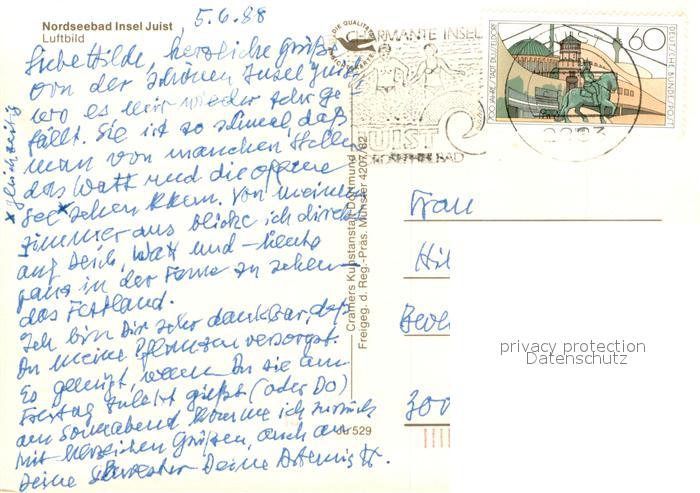 Nordseebad Insel Juist
Luftbild
5.6.88
Liebe Hilde, herzliche Grüße
von der schönen Insel Juist,
wo es mir wieder sehr ge-
fällt. Sie ist so schmal, daß
man von manchen Stellen
das Watt und die offene
See * sehen kann. Von meinem
* gleichzeitig
Zimmer aus blicke ich direkt
auf Deich, Watt und – heute
ganz in der Ferne zu sehen –
das Festland.
Ich bin Dir sehr dankbar, daß
Du meine Pflanzen versorgst.
Es genügt, wenn Du sie am
Freitag zuletzt gießt (oder Do)
am Sonnabend komme ich zurück
Mit herzlichen Grüßen, auch an
Deine Schwester Deine Artemis
DIE QUALITÄTS
CHARMANTE INSEL
JUIST
NORDSEEBAD
2983
60
DEUTSCHE BUNDESPOST
700 JAHRE STADT DÜSSELDORF
Cramers Kunstanstalt Dortmund
Freigeg. d. Reg.-Präs. Münster 4207/82
Ju 529
Frau
Hil
300
privacy protection
Datenschutz